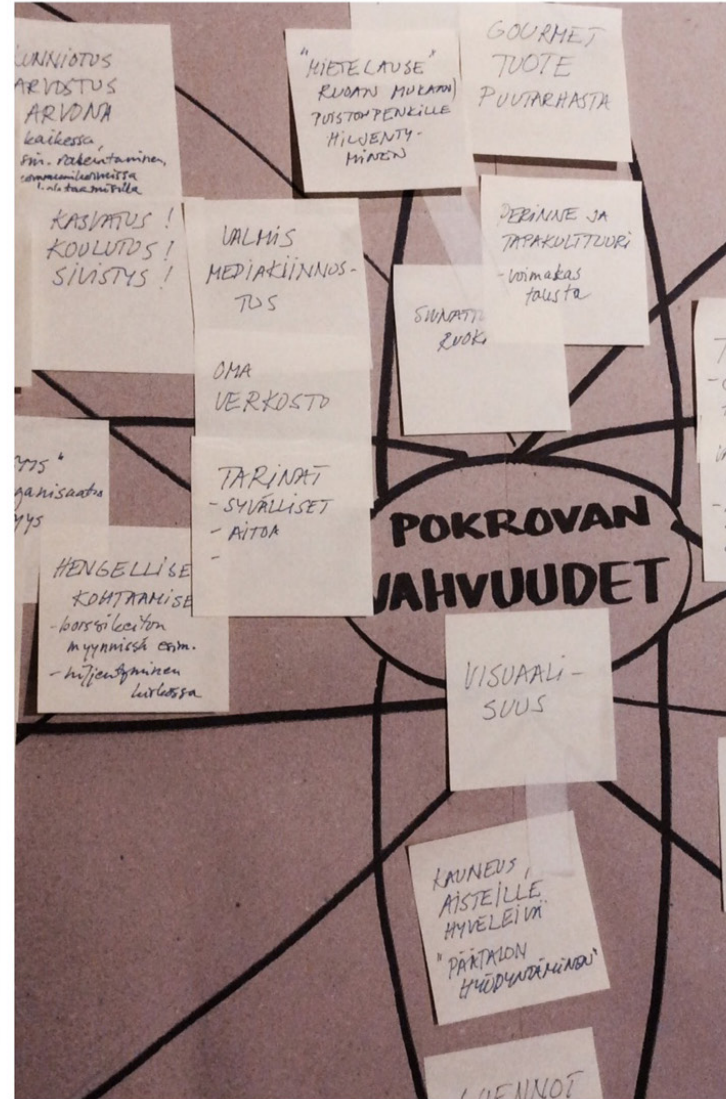 KUNNIOTUS
ARVOSTUS
ARVONA
kaikessa,
esim. rakentaminen,
"MIETELAUSE"
RUOAN MUKAAN)
PUISTONPENKILLE
HILJENTY-
MINEN
GOURMET
TUOTE
PUUTARHASTA
KASVATUS !
KOULUTUS !
SIVISTYS !
VALMIS
MEDIAKIINNOS-
TUS
PERINNE JA
TAPAKULTTUURI
- voimakas
tausta
SIUNATTU
RUOKA
OMA
VERKOSTO
TARINAT
- SYVÄLLISET
- AITOA
-
HENGELLISE
KOHTAAMISE
- borssikeiton
myynnissä esim.
- hiljentyminen
kirkossa
POKROVAN
VAHVUUDET
VISUAALI-
SUUS
KAUNEUS,
AISTEILLE
HYVELEIVÄ
"PÄÄTALON
HYÖDYNTÄMINEN"
LUENNOT